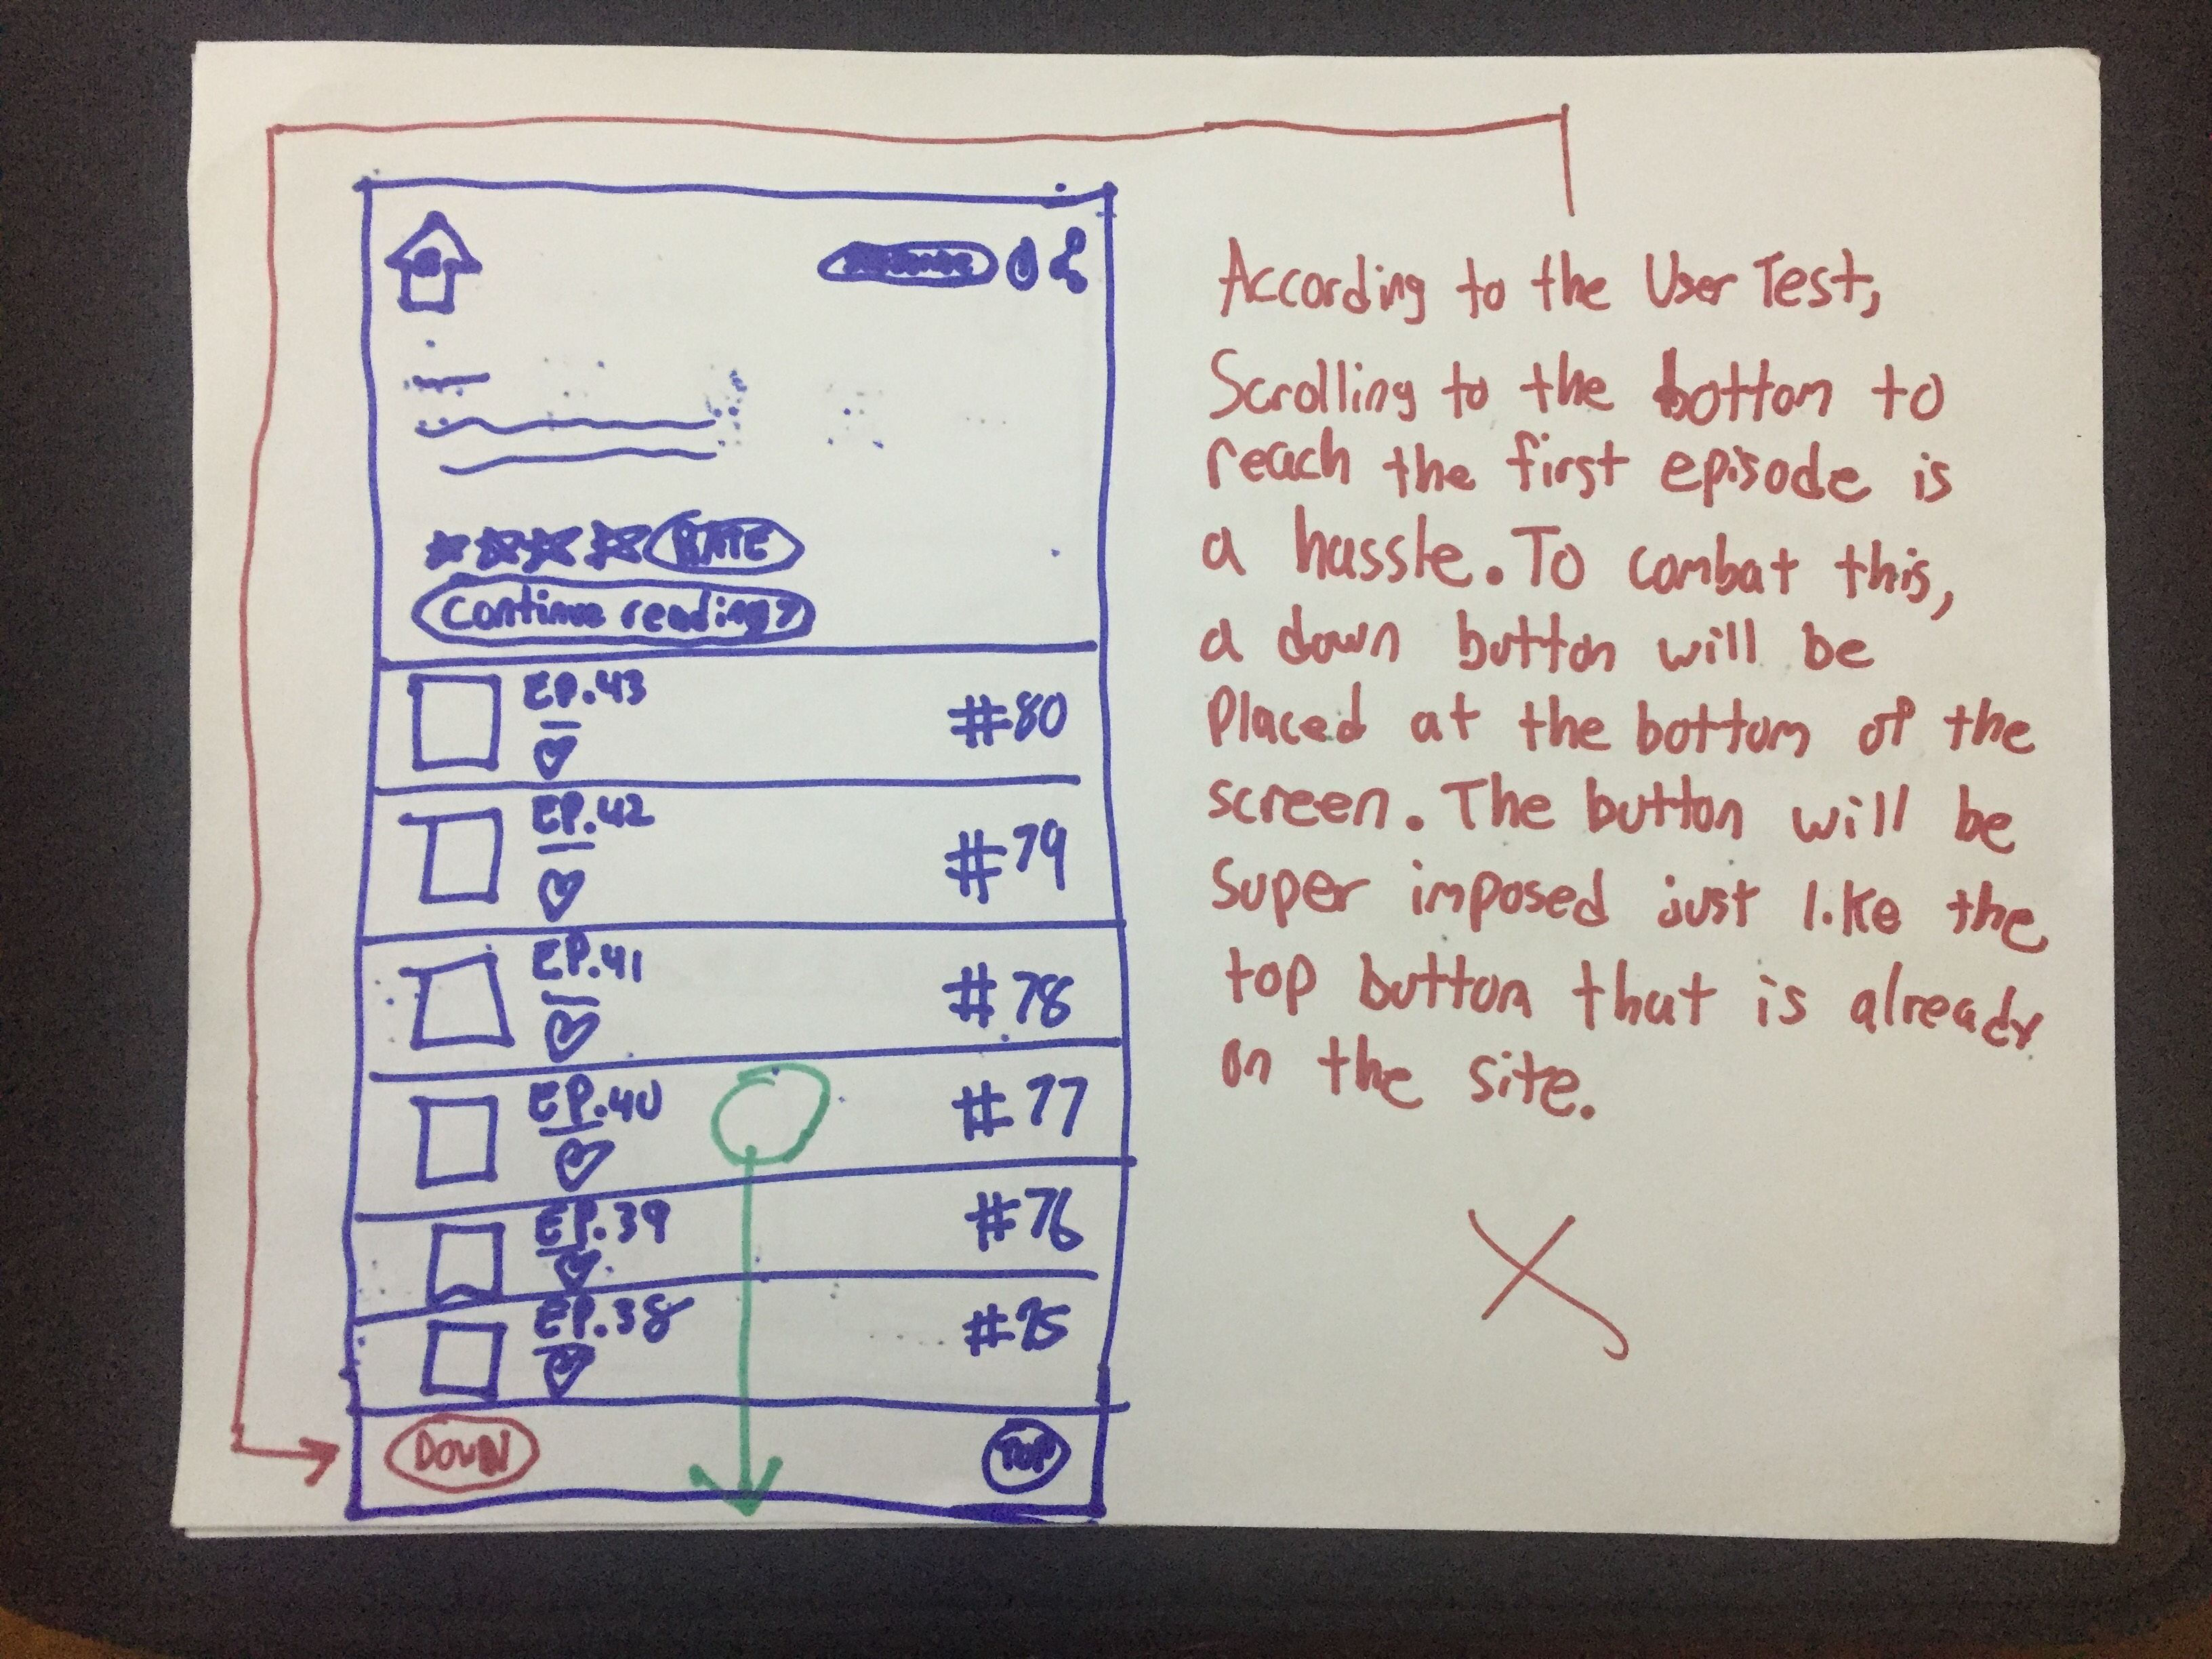 RATE
Continue reading >
EP.43
#80
EP.42
#79
EP.41
#78
EP.40
#77
EP.39
#76
EP.38
#75
DOWN
TOP
According to the User Test,
Scrolling to the bottom to
reach the first episode is
a hassle. To combat this,
a down button will be
Placed at the bottom of the
screen. The button will be
Super imposed just like the
top button that is already
on the site.